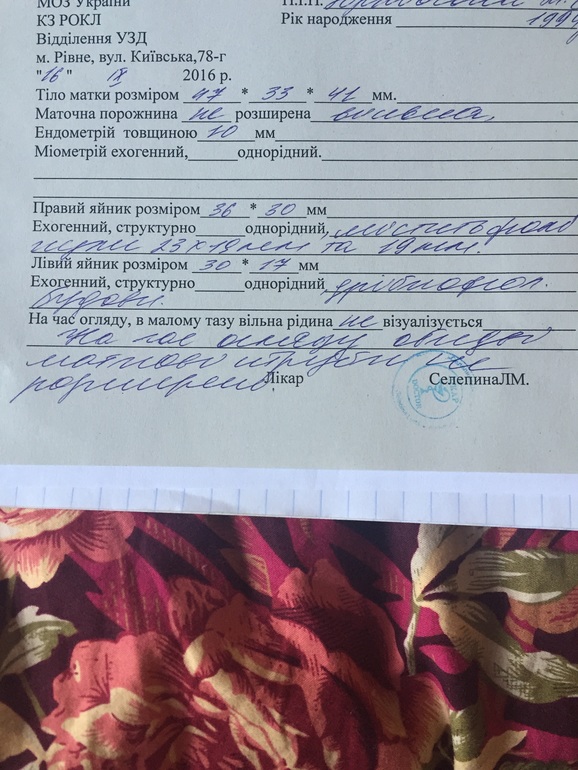 МОЗ України
КЗ РОКЛ П.І.П.
Відділення УЗД Рік народження 199
м. Рівне, вул. Київська,78-г
"16" IX 2016 р.
Тіло матки розміром 47 * 33 * 41 мм.
Маточна порожнина не розширена вільна,
Ендометрій товщиною 10 мм
Міометрій ехогенний,______однорідний.
Правий яйник розміром 36 * 30 мм
Ехогенний, структурно______однорідний, містить фолі
кули 23х19мм та 19мм.
Лівий яйник розміром 30 * 17 мм
Ехогенний, структурно______однорідний, дрібнофол.
будови.
На час огляду, в малому тазу вільна рідина не візуалізується
На час огляду обидві
маткові труби не
розширені.
Лікар СелепинаЛМ.